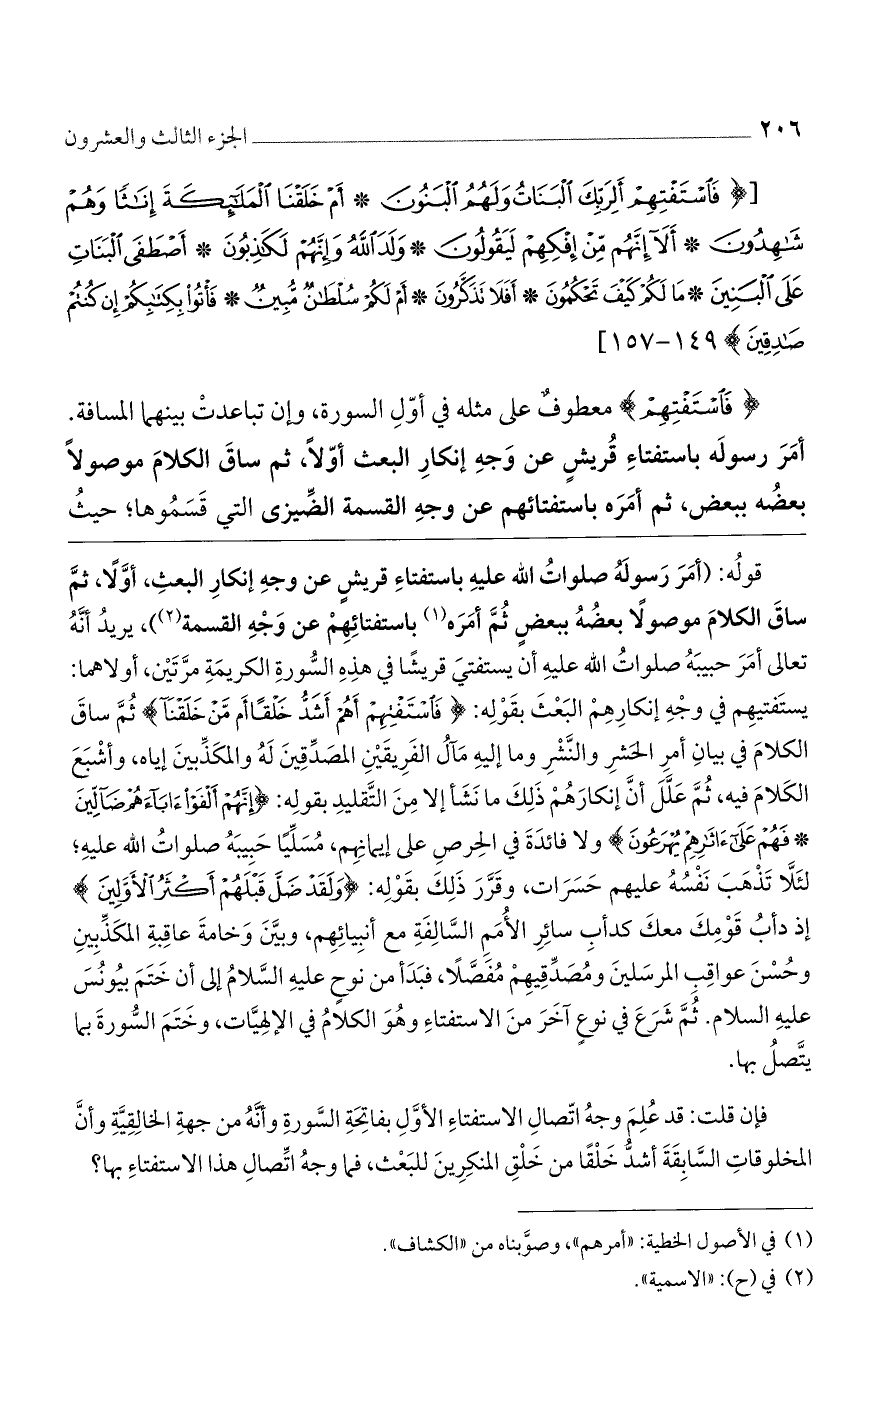 ٢٠٦ الجزء الثالث والعشرون
[﴿ فَٱسْتَفْتِهِمْ أَلِرَبِّكَ ٱلْبَنَاتُ وَلَهُمُ ٱلْبَنُونَ * أَمْ خَلَقْنَا ٱلْمَلَٰٓئِكَةَ إِنَٰثًا وَهُمْ
شَٰهِدُونَ * أَلَآ إِنَّهُم مِّنْ إِفْكِهِمْ لَيَقُولُونَ * وَلَدَ ٱللَّهُ وَإِنَّهُمْ لَكَٰذِبُونَ * أَصْطَفَى ٱلْبَنَاتِ
عَلَى ٱلْبَنِينَ * مَا لَكُمْ كَيْفَ تَحْكُمُونَ * أَفَلَا تَذَكَّرُونَ * أَمْ لَكُمْ سُلْطَٰنٌ مُّبِينٌ * فَأْتُوا۟ بِكِتَٰبِكُمْ إِن كُنتُمْ
صَٰدِقِينَ ﴾ ١٤٩-١٥٧]
﴿ فَٱسْتَفْتِهِمْ﴾ معطوفٌ على مثله في أوّلِ السورة، وإن تباعدتْ بينهما المسافة.
أمَرَ رسولَه باستفتاءِ قُريشٍ عن وَجهِ إنكارِ البعث أوّلاً، ثم ساقَ الكلامَ موصولاً
بعضُه ببعض، ثم أمَرَه باستفتائهم عن وجهِ القسمة الضِّيزى التي قَسَمُوها؛ حيثُ
قولُه: (أمَرَ رَسولَهُ صلواتُ الله عليهِ باستفتاءِ قريشٍ عن وجهِ إنكارِ البعثِ، أوَّلًا، ثمَّ
ساقَ الكلامَ موصولًا بعضُهُ ببعضٍ ثُمَّ أمَرَه(١) باستفتائِهِمْ عن وَجْهِ القسمة(٢))، يريدُ أنَّهُ
تعالى أمَرَ حبيبَهُ صلواتُ الله عليهِ أن يستفتيَ قريشًا في هذِهِ السُّورةِ الكريمَةِ مرَّتَيْن، أولاهما:
يستَفتِيهِم في وجْهِ إنكارِهِمْ البَعْثَ بقَوْلِه: ﴿ فَٱسْتَفْتِهِمْ أَهُمْ أَشَدُّ خَلْقًا أَم مَّنْ خَلَقْنَآ﴾ ثُمَّ ساقَ
الكلامَ في بيانِ أمرِ الحَشرِ والنَّشْرِ وما إليهِ مَآلُ الفَريقَيْنِ المصَدِّقِينَ لَهُ والمكَذِّبينَ إياه، وأشْبَعَ
الكَلامَ فيه، ثُمَّ عَلَّلَ أنَّ إنكارَهُمْ ذَلِكَ ما نَشَأ إلا مِنَ التَّقليدِ بقولِه: ﴿إِنَّهُمْ أَلْفَوْا۟ ءَابَآءَهُمْ ضَآلِّينَ
* فَهُمْ عَلَىٰٓ ءَاثَٰرِهِمْ يُهْرَعُونَ﴾ ولا فائدَةَ في الحِرصِ على إيمانِهِم، مُسَلِّيًا حَبِيبَهُ صلواتُ الله عليهِ؛
لئَلَّا تَذْهَبَ نَفْسُهُ عليهم حَسَرَات، وقَرَّرَ ذَلِكَ بقَوْلِه: ﴿وَلَقَدْ ضَلَّ قَبْلَهُمْ أَكْثَرُ ٱلْأَوَّلِينَ ﴾
إذ دأبُ قَوْمِكَ معكَ كدأبِ سائِرِ الأُمَمِ السَّالِفَةِ مع أنبِيائِهِم، وبيَّنَ وَخامةَ عاقِبةِ المكَذِّبينِ
وحُسْنَ عواقِبِ المرسَلينَ ومُصَدِّقِيهِمْ مُفَصَّلًا، فبَدَأ من نوحٍ عليهِ السَّلامُ إلى أن خَتَمَ بيُونُسَ
عليهِ السلام. ثُمَّ شَرَعَ في نوعٍ آخَرَ منَ الاستفتاءِ وهُوَ الكلامُ في الإلهِيَّات، وختَمَ السُّورةَ بما
يتَّصلُ بها.
فإن قلت: قد عُلِمَ وجهُ اتّصالِ الاستفتاءِ الأوَّلِ بفاتحةِ السَّورةِ وأنَّهُ من جهةِ الخالِقِيَّةِ وأنَّ
المخلوقاتِ السَّابقَةَ أشدُّ خَلْقًا من خَلْقِ المنكِرينَ للبَعْث، فما وجهُ اتِّصالِ هذا الاستفتاءِ بها؟
(١) في الأصول الخطية: «أمرهم»، وصوَّبناه من «الكشاف».
(٢) في (ح): «الاسمية».